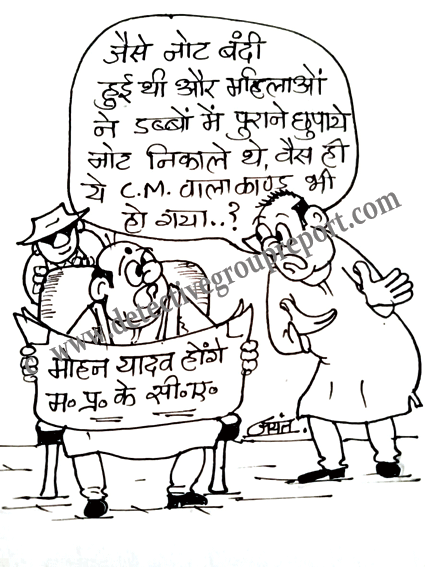 जैसे नोट बंदी
हुई थी और महिलाओं
ने डब्बों में पुराने छुपाये
नोट निकाले थे, वैस ही
ये C.M. वाला काण्ड भी
हो गया..?
© www.detectivegroupreport.com
मोहन यादव होंगे
म॰ प्र॰ के सी॰ए॰
जयंत..